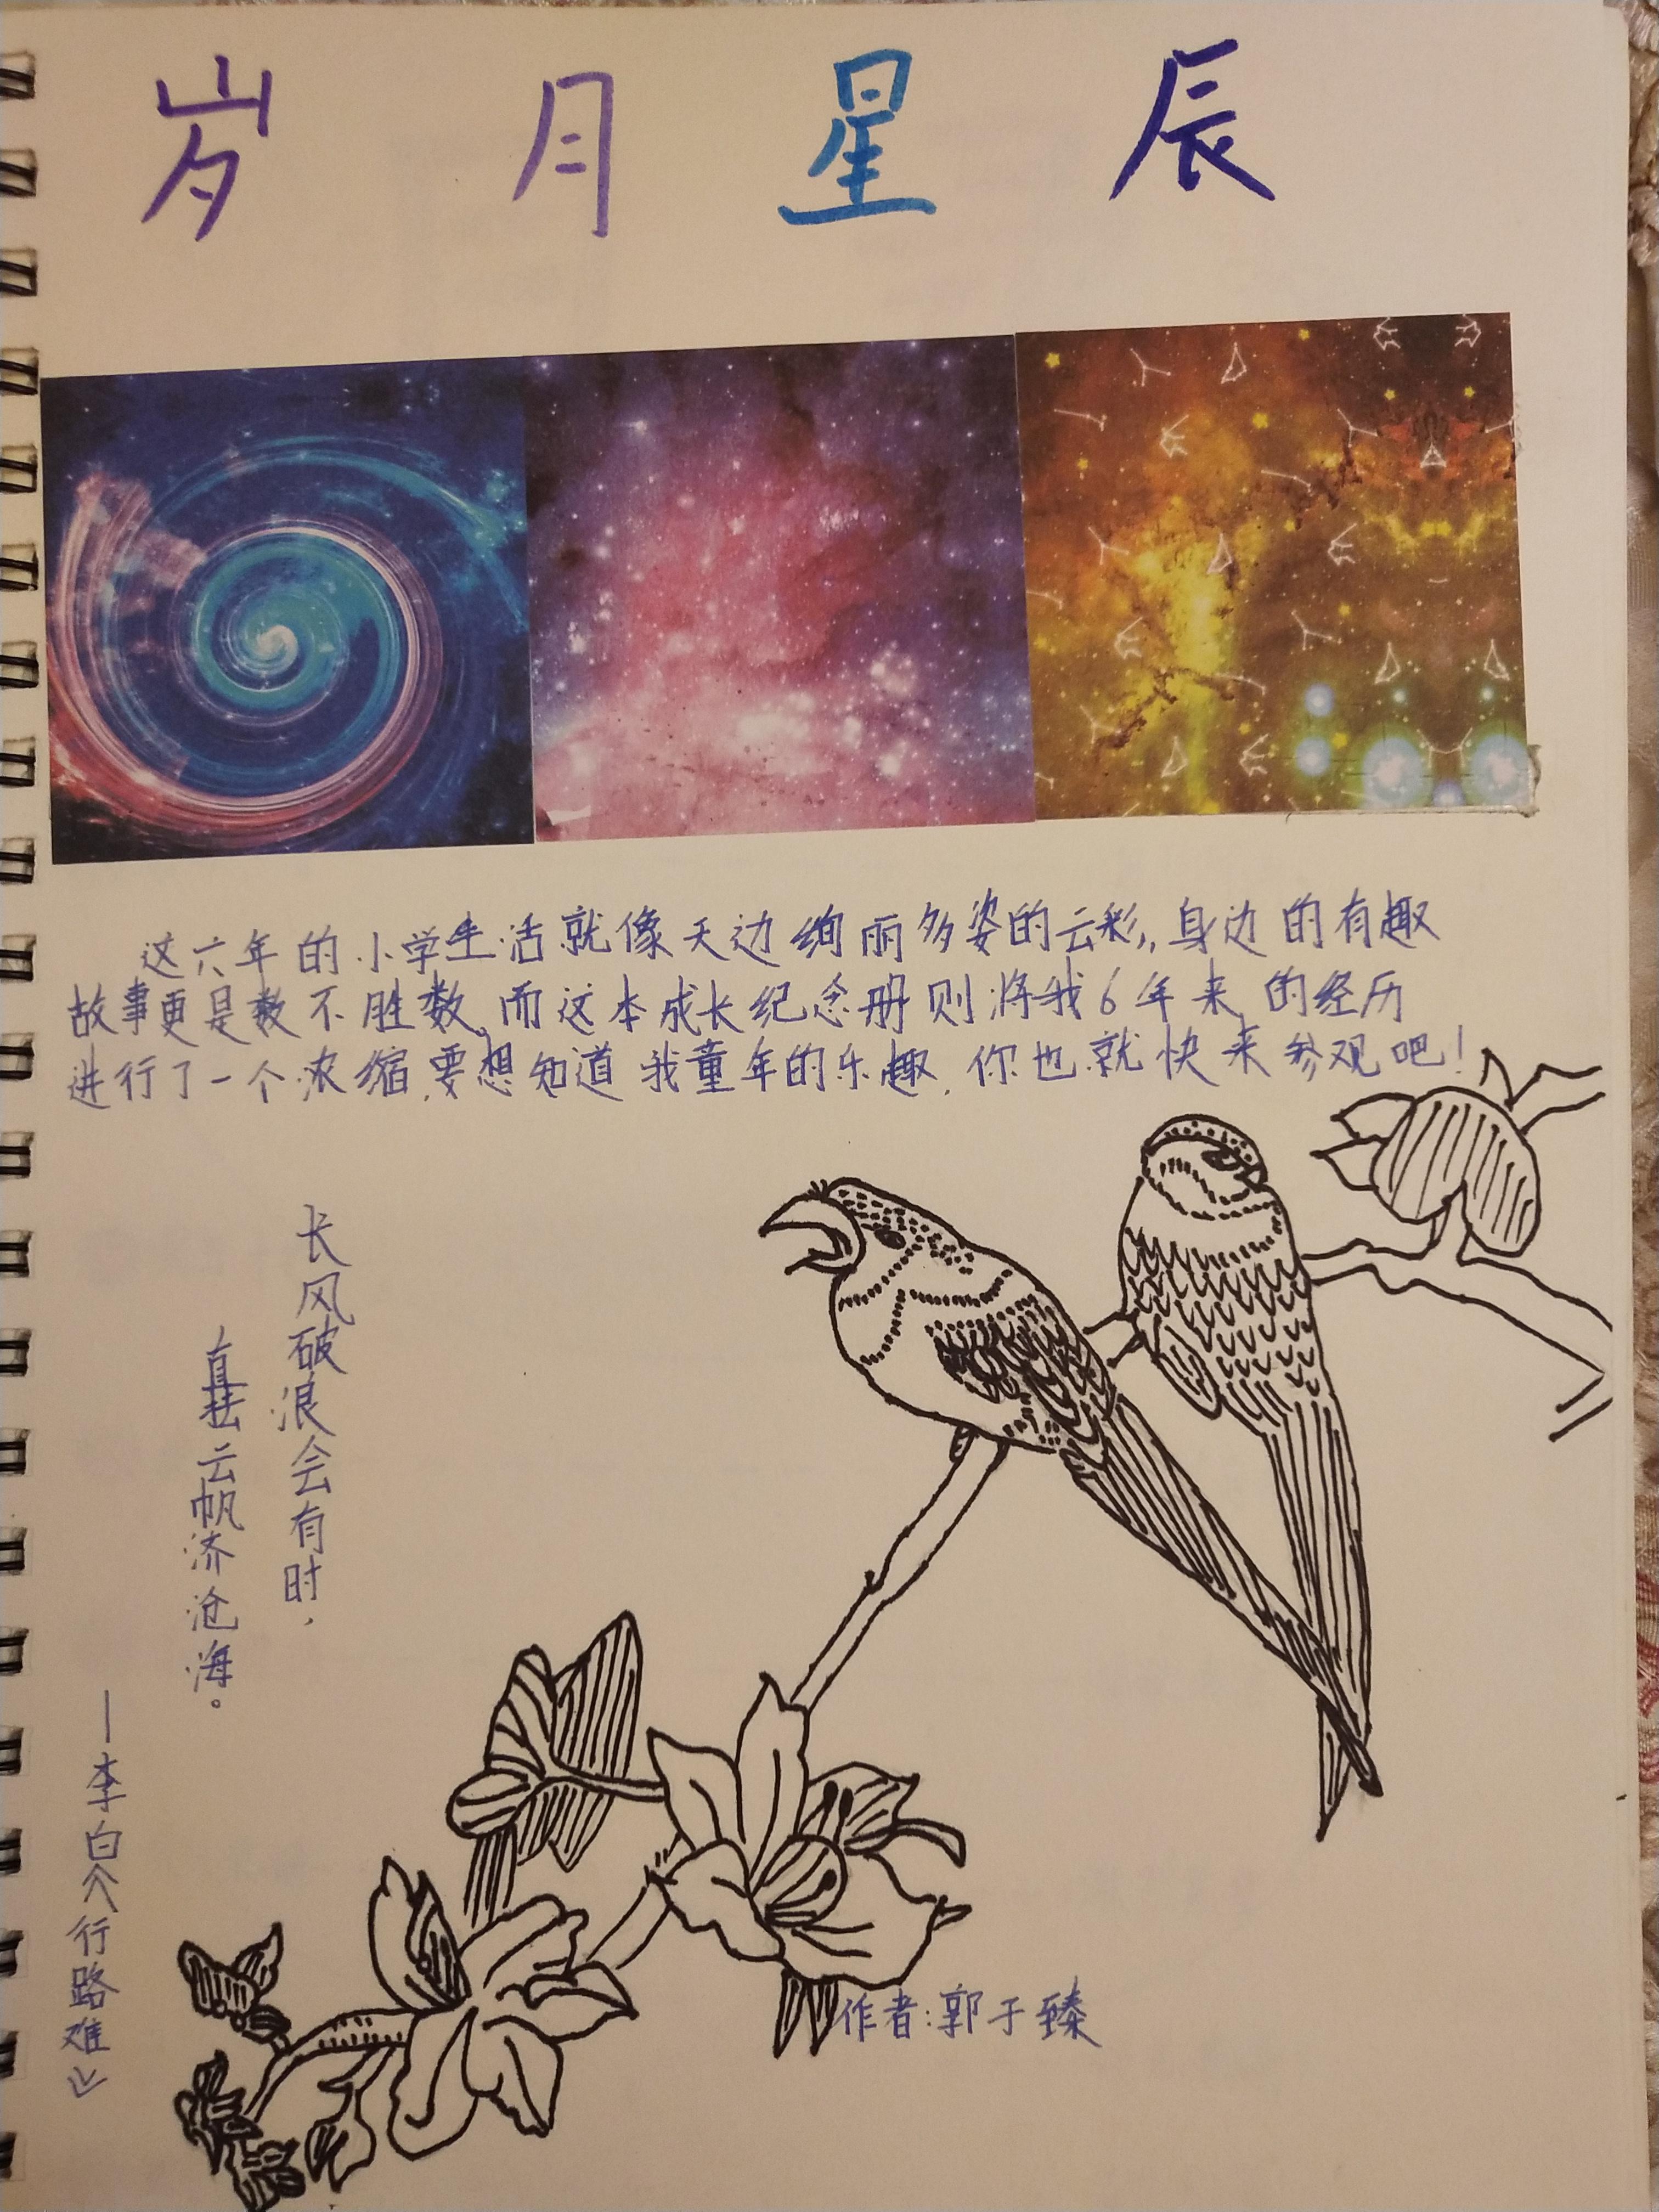 岁月星辰
这六年的小学生活就像天边绚丽多姿的云彩,身边的有趣
故事更是数不胜数,而这本成长纪念册则将我6年来的经历
进行了一个浓缩,要想知道我童年的乐趣,你也就快来参观吧!
长风破浪会有时,
直挂云帆济沧海。
—李白《行路难》
作者:郭于臻